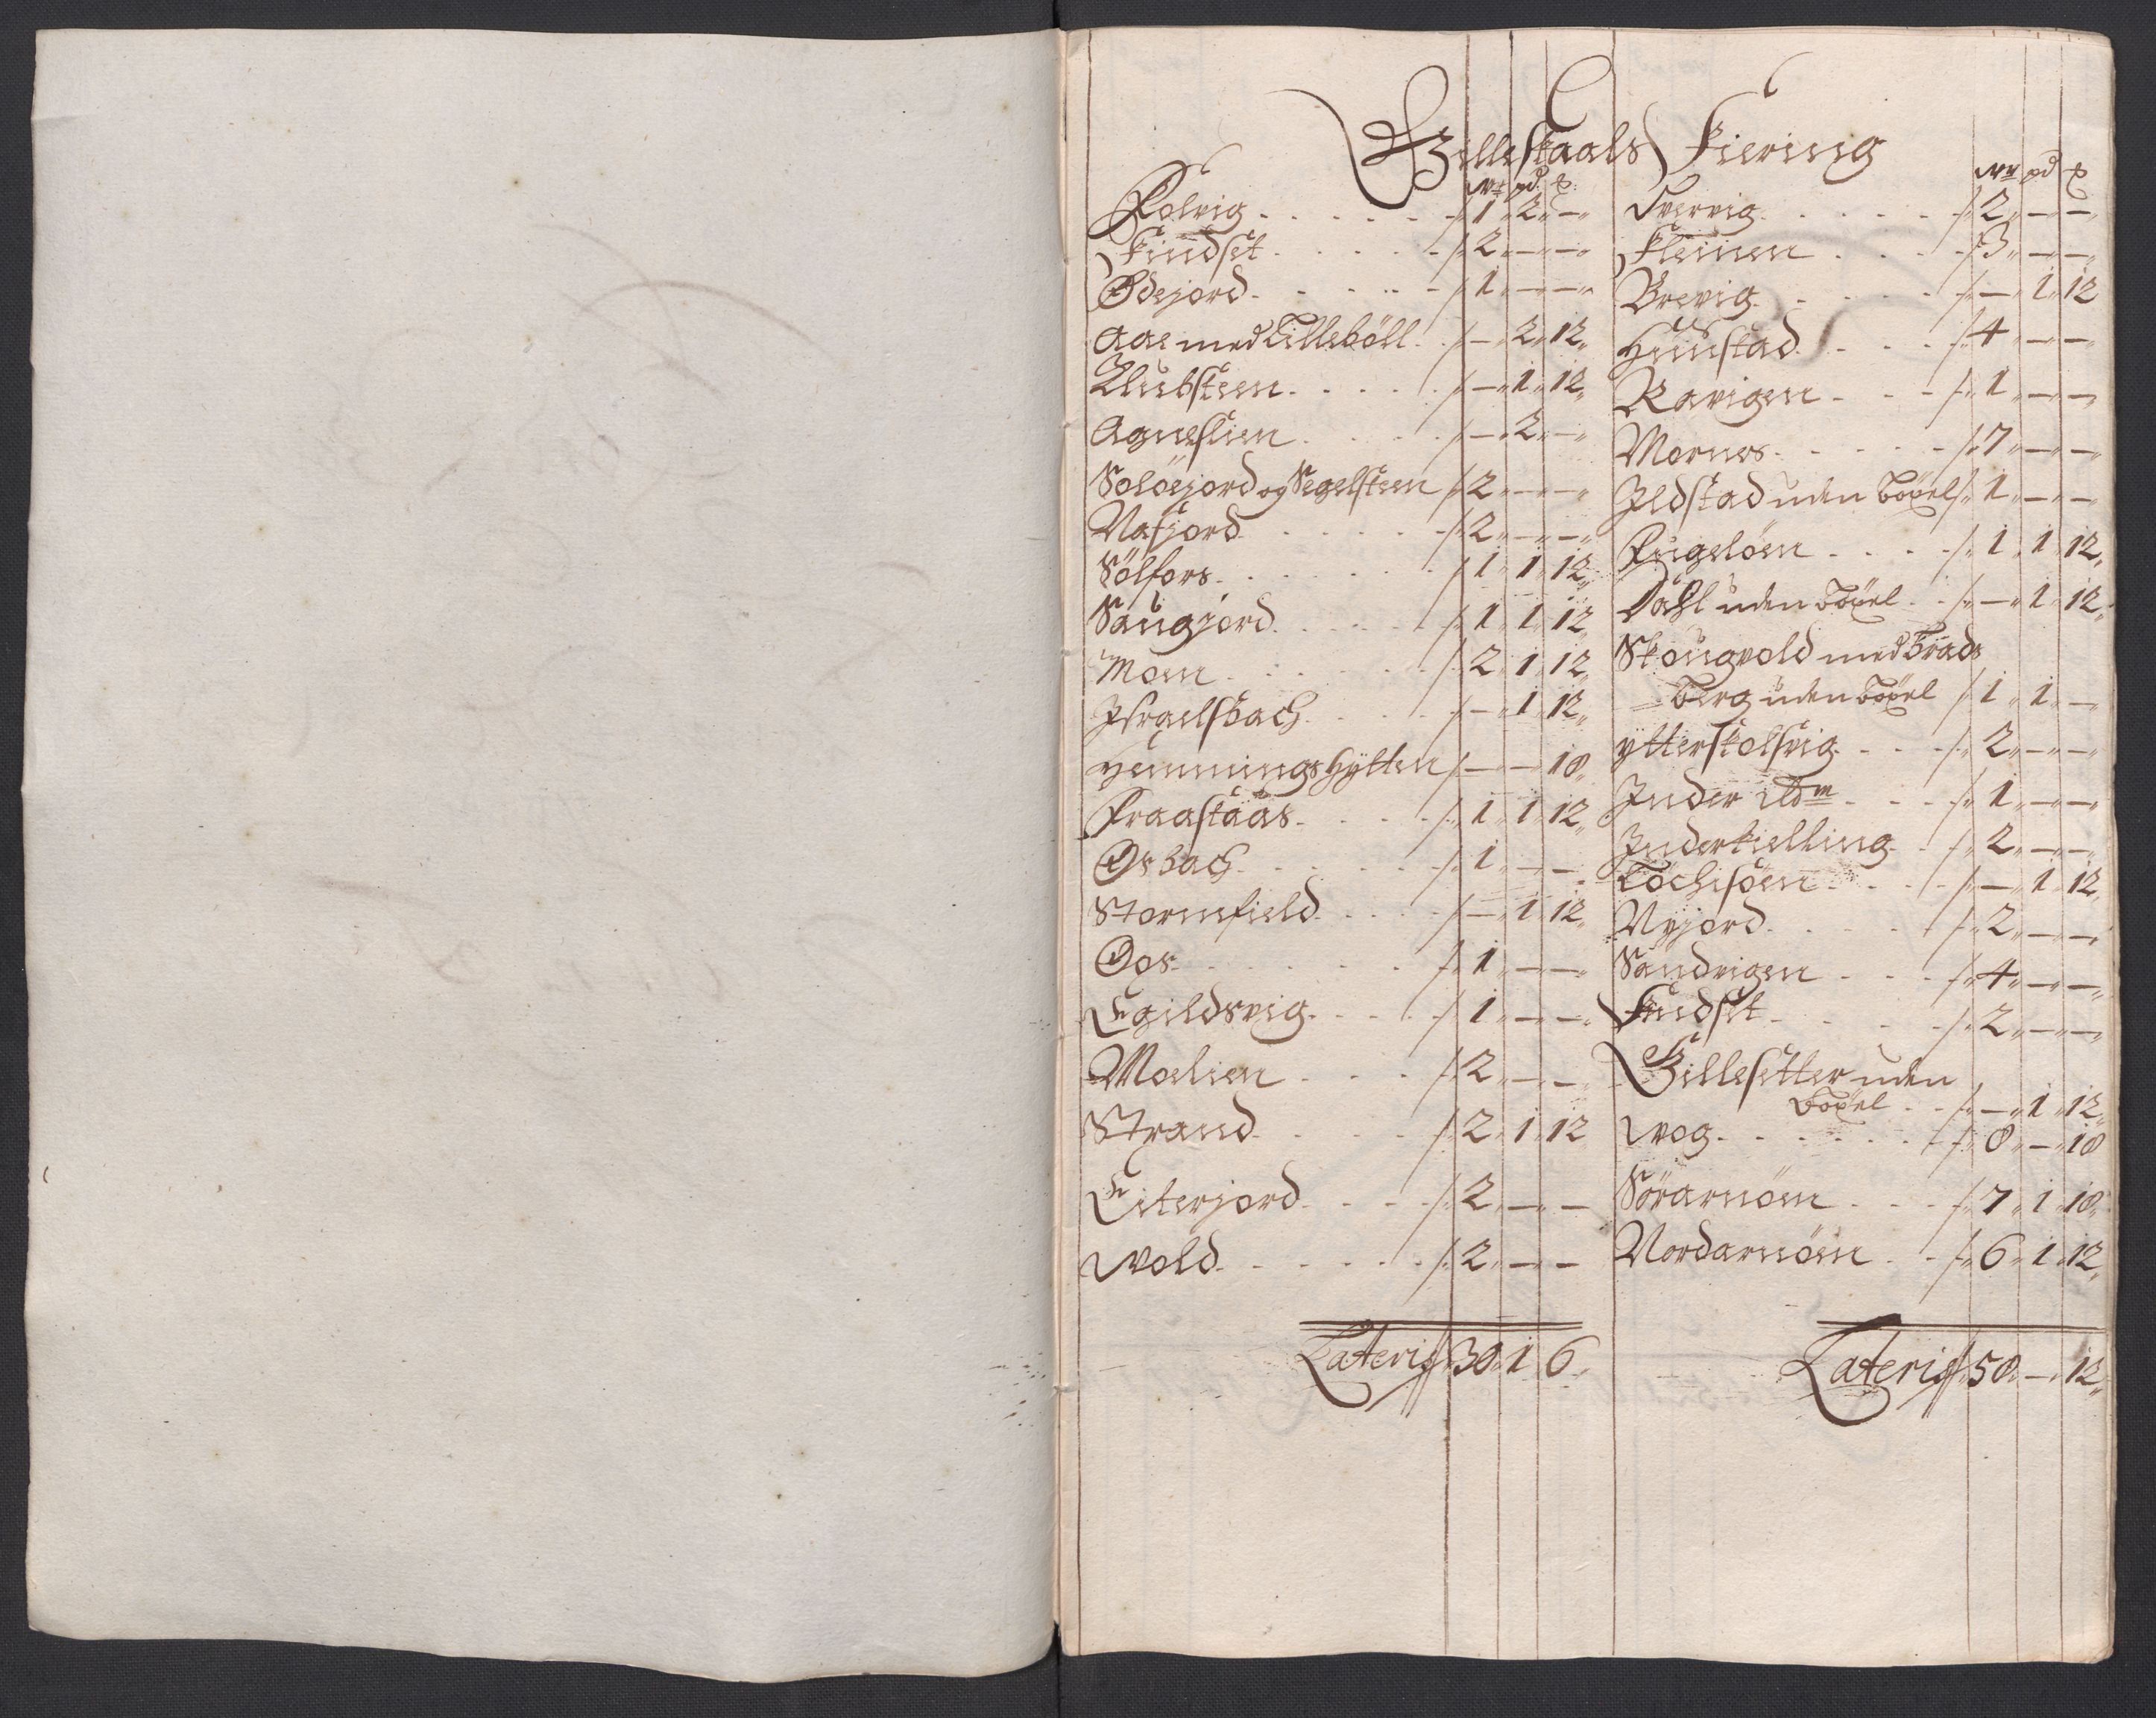 Gilleskaals Fiering
Wr pd ß
Kolvig . . . . . . . /: 1 " 2 " — "
Findset . . . . . /: 2 " — " — "
Ødejord . . . . . . /: 1 " — " — "
Aae med Lilleböll . /: — " 2 " 12 "
Klubsteen . . . . . /: — " 1 " 12 "
Agneslien . . . . . /: — " 2 " — "
Solöejord og Segelsteen /: 2 " — " — "
Nafjord . . . . . . /: 2 " — " — "
Sölfors . . . . . . /: 1 " 1 " 12 "
Saugjord . . . . . /: 1 " 1 " 12 "
Moen . . . . . . /: 2 " 1 " 12 "
Israelsbach . . . . /: — " 1 " 12 "
Hemmings Hÿtten /: — " — " 18 "
Fraastaas . . . . . /: 1 " 1 " 12 "
Osbach . . . . . . /: 1 " — " —
Stornefield . . . . /: — " 1 " 12
Oos . . . . . . . /: 1 " — " — "
Egildsvig . . . . . /: 1 " — " — "
Moelien . . . . /: 2 " — " —
Strand . . . . . /: 2 " 1 " 12
Eiterjord . . . . /: 2 " — " —
Wold . . . . . . /: 2 " — " —
Lateris /: 30 " 1 " 6
Wr pd ß
Svervig . . . . . . /: 2 " — " — "
Fleinen . . . . /: 3 " — " — "
Brevig . . . . . . /: — " 1 " 12
Hunstad . . . . /: 4 " — " — "
Ravigen . . . /: 1 " — " — "
Mornes . . . . . /: 7 " — " — "
Ildstad uden böxel /: 1 " — " — "
Fugelöen . . . . /: 1 " 1 " 12 "
Dahl uden böxel . /: — " 1 " 12 "
Skougvold med Brads
= berg uden böxel /: 1 " 1 " —
ytterskolsvig . . . /: 2 " — " — "
Inder it<sup>m</sup> . . . . /: 1 " — " — "
Inderkielling . /: 2 " — " — "
Töchisöen . . . . /: — " 1 " 12
Nyjord . . . . . /: 2 " — " — "
Sandvigen . . . /: 4 " — " — "
Findset . . . . . /: 2 " — " — "
Gillesetter uden
böxel . . /: — " 1 " 12 "
Wog . . . . . . . /: 8 " — " 18
Sörarnöen . . . /: 7 " 1 " 18 "
Nordarnöen . . /: 6 " 1 " 12 "
Lateris /: 58 " — " 12 "